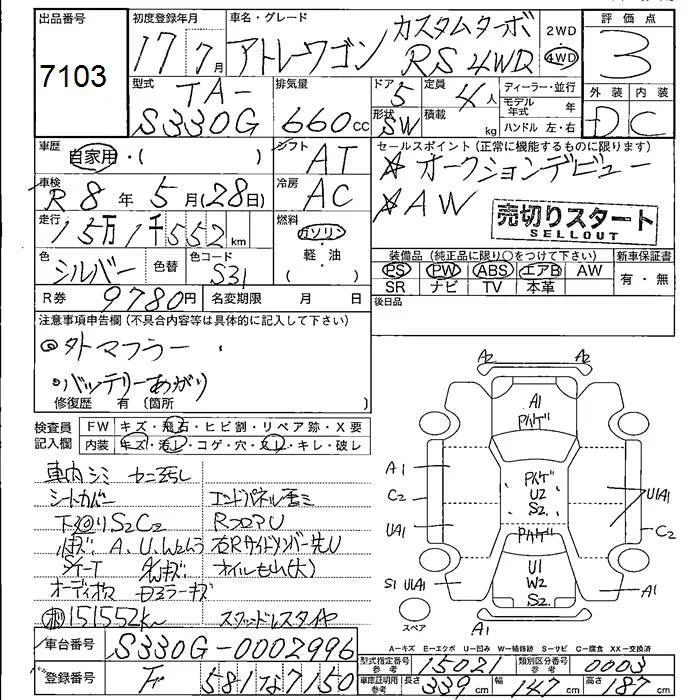 出品番号 7103
初度登録年月 17 7月
車名・グレード アトレーワゴン カスタムターボ RS 4WD
2WD
4WD
評価点 3
外装 内装
D C
型式 TA-
S330G
排気量 660cc
ドア 5
形状 SW
定員 4人
積載 kg
ディーラー・並行
モデル年式 年
ハンドル 左・右
車歴 自家用・( )
シフト AT
車検 R8年5月(28日)
冷房 AC
走行 15万1千552km
燃料 ガソリン
軽・油
( )
色 シルバー
色替
色コード S31
R券 9780円
名変期限 月 日
セールスポイント (正常に機能するものに限ります)
☆オークションデビュー
☆AW
売切りスタート
SELLOUT
装備品 (純正品に限り○をつけて下さい)
新車保証書
PS PW ABS エアB AW
SR ナビ TV 本革
有・無
後日品
注意事項申告欄 (不具合内容等は具体的に記入して下さい)
◎外マフラー
・バッテリーあがり
修復歴 有 〔箇所 〕
検査員記入欄
FW キズ・飛石・ヒビ割・リペア跡・X要
内装 キズ・汚レ・コゲ・穴・スレ・キレ・破レ
車内シミ
シートカバー エンドパネル歪ミ
S2C2 RフロアU
A、U、W2 右Rサイドメンバー先U
オイルもれ(大)
オーディオ
151552k スタッドレスタイヤ
車台番号 S330G-0002996
登録番号 581 7150
A2 A2
A1
Pハゲ
A1
C2
UA1
S1 UA1
Pハゲ
U2
S2
Pハゲ
U1
W2
S2
U1A1
C2
A1
A1
スペア
A=キズ E=エクボ U=凹み W=補修跡 S=サビ C=腐食 XX=交換済
型式指定番号 参考 15021
類別区分番号 参考 0003
車庫証明用 参考 長さ 339cm 幅 147cm 高さ 187cm